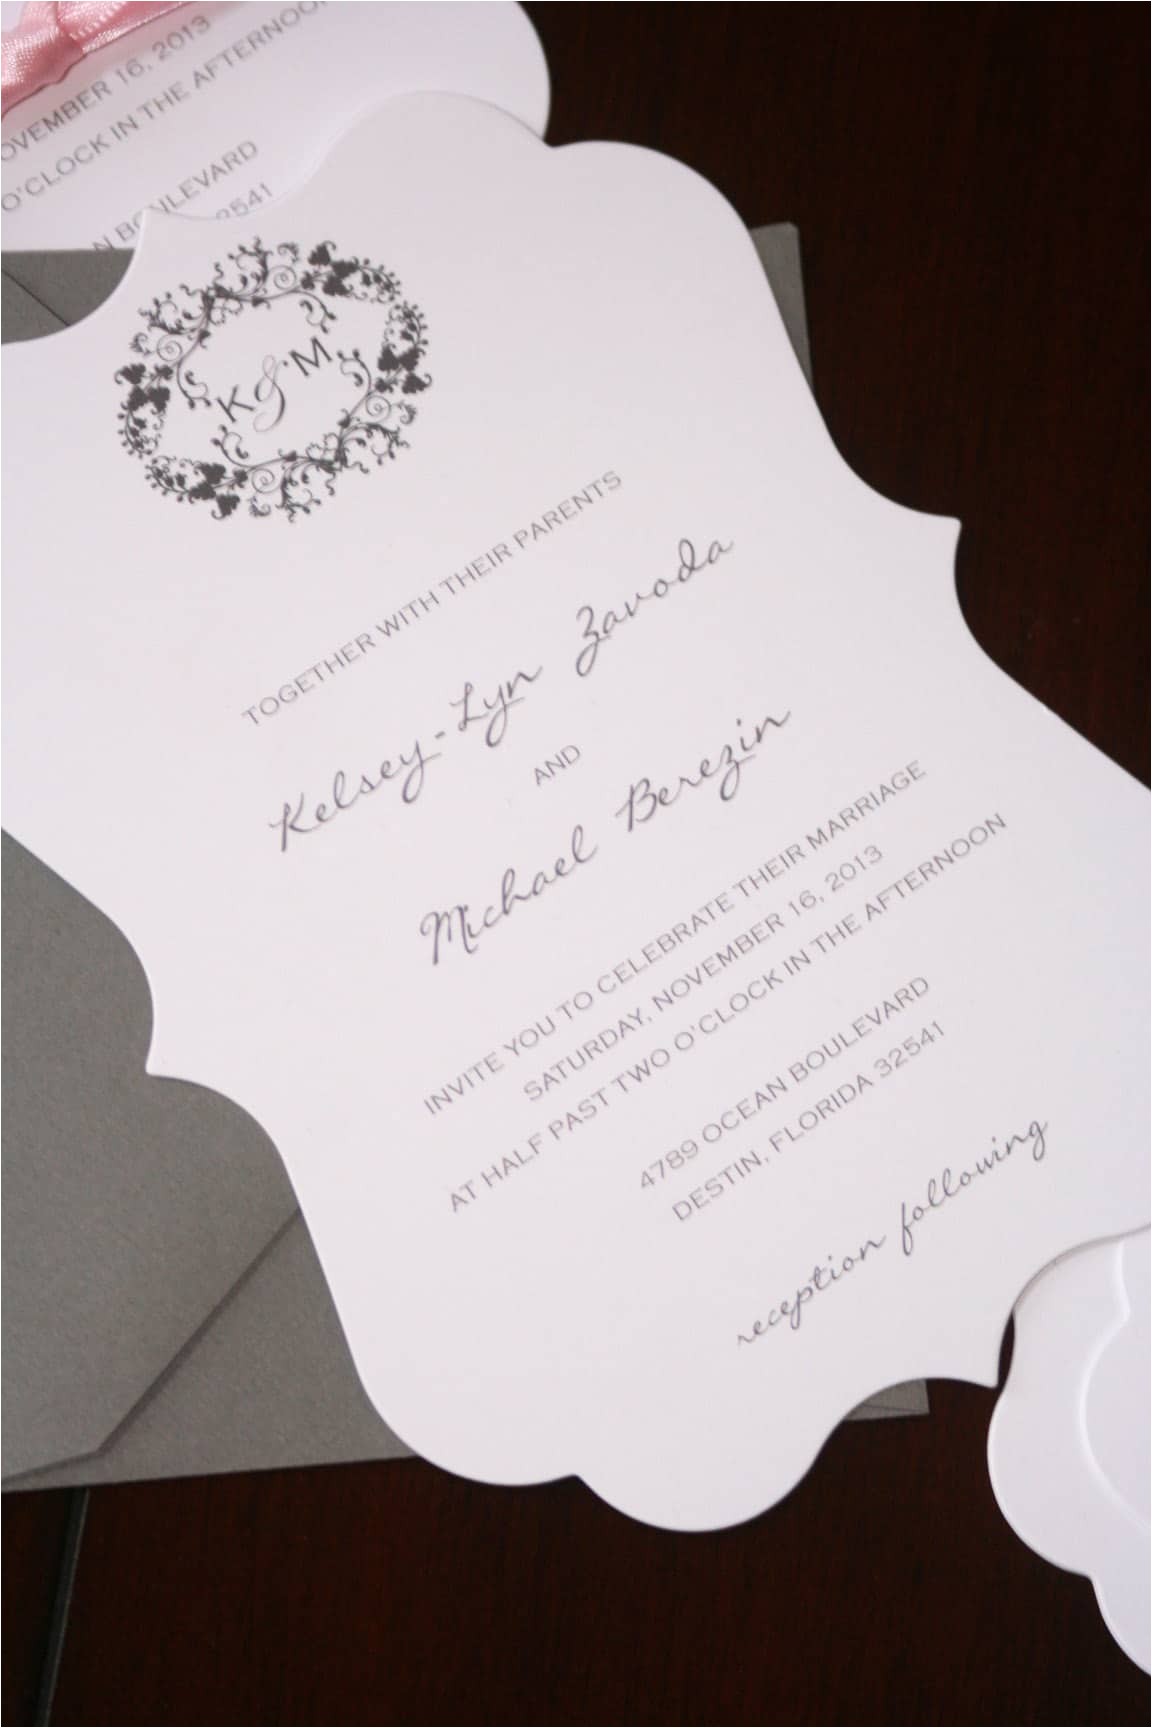 NOVEMBER 16, 2013
O'CLOCK IN THE AFTERNOON
N BOULEVARD
32541
K & M
TOGETHER WITH THEIR PARENTS
Kelsey-Lyn Zavoda
AND
Michael Berezin
INVITE YOU TO CELEBRATE THEIR MARRIAGE
SATURDAY, NOVEMBER 16, 2013
AT HALF PAST TWO O'CLOCK IN THE AFTERNOON
4789 OCEAN BOULEVARD
DESTIN, FLORIDA 32541
reception following